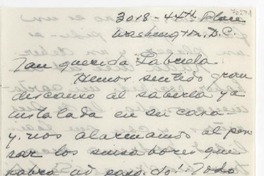 3018-44th Place
Washington, D.C.
Tan querida Gabriela:
Hemos sentido gran
descanso al saberla ya
instalada en su casa
y nos alarmamos al pen-
sar los sinsabores que
habrá pasado. Todo